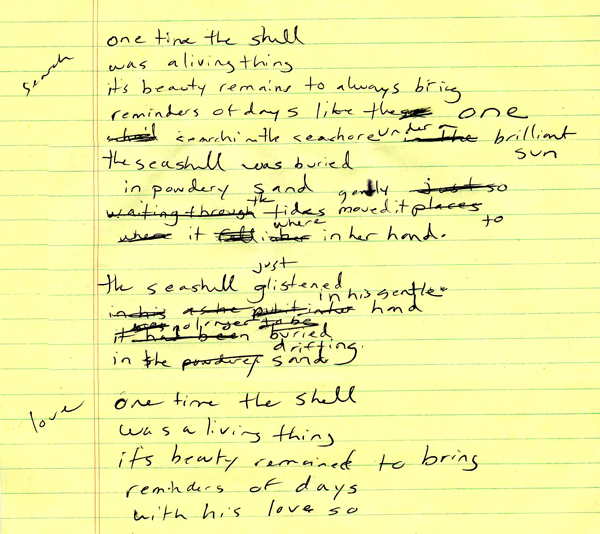 search
one time the shell
was a living thing
its beauty remains to always bring
reminders of days like the one
search in the seashore under a in the brilliant
sun
the seashell was buried
in powdery sand gently just so
waiting through the tides moved it places
to
where it fell where in her hand.
just
the seashell glistened
in his gentle
in his as he put it in her hand
was no longer to be
it had been buried
drifting
in the powdery sand.
love
one time the shell
was a living thing
its beauty remained to bring
reminders of days
with his love so